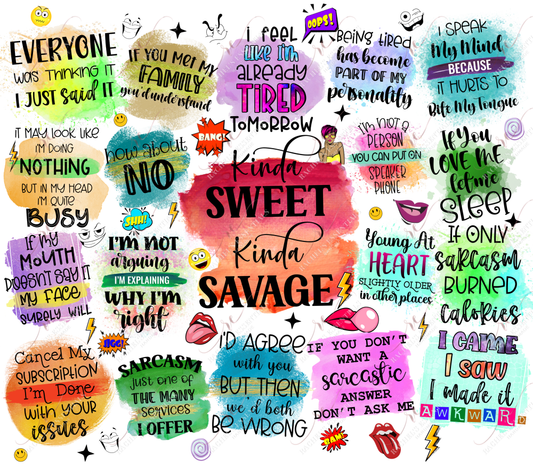 EVERYONE
was THINKING IT
I JUST SAID IT
IF YOU MET MY
FAMILY
you'd understand
OOPS!
i FEEL
LIKE I'm
alREADY
TIRED
TOMORROW
BEING TIRED
has become
PART OF MY
personality
I SPEAK
My Mind
BECAUSE
IT HURTS TO
Bite My Tongue
IT MAY LOOK LIKE
I'M DOING
NOTHING
BUT IN MY HEAD
I'M QUITE
BUSY
how about
NO
BANG!
Kinda
SWEET
Kinda
SAVAGE
I'm not a
PERSON
YOU CAN PUT ON
SPEAKER
PHONE
If You
LOVE ME
let me
SLEEP
IF My
MOUTH
DOESN'T SAY IT
MY FACE
SURELY WILL
I'M NOT
arguing
I'M EXPLAINING
WHY I'M
right
Young At
HEART
SLIGHTLY OLDER
in other places
IF ONLY
saRcasm
BURNED
calories
Cancel My
SUBSCRIPTION
I'm Done
with YOUR
issues
SARCASM
just one of
THE MANY
services
I OFFER
I'D AGREE
with you
BUT THEN
we'd both
BE WRONG
IF YOU DON'T
WANT A
sarcastic
ANSWER
DON'T ASK ME
I CAME
I SAW
I made it
AWKWARD
BAM!